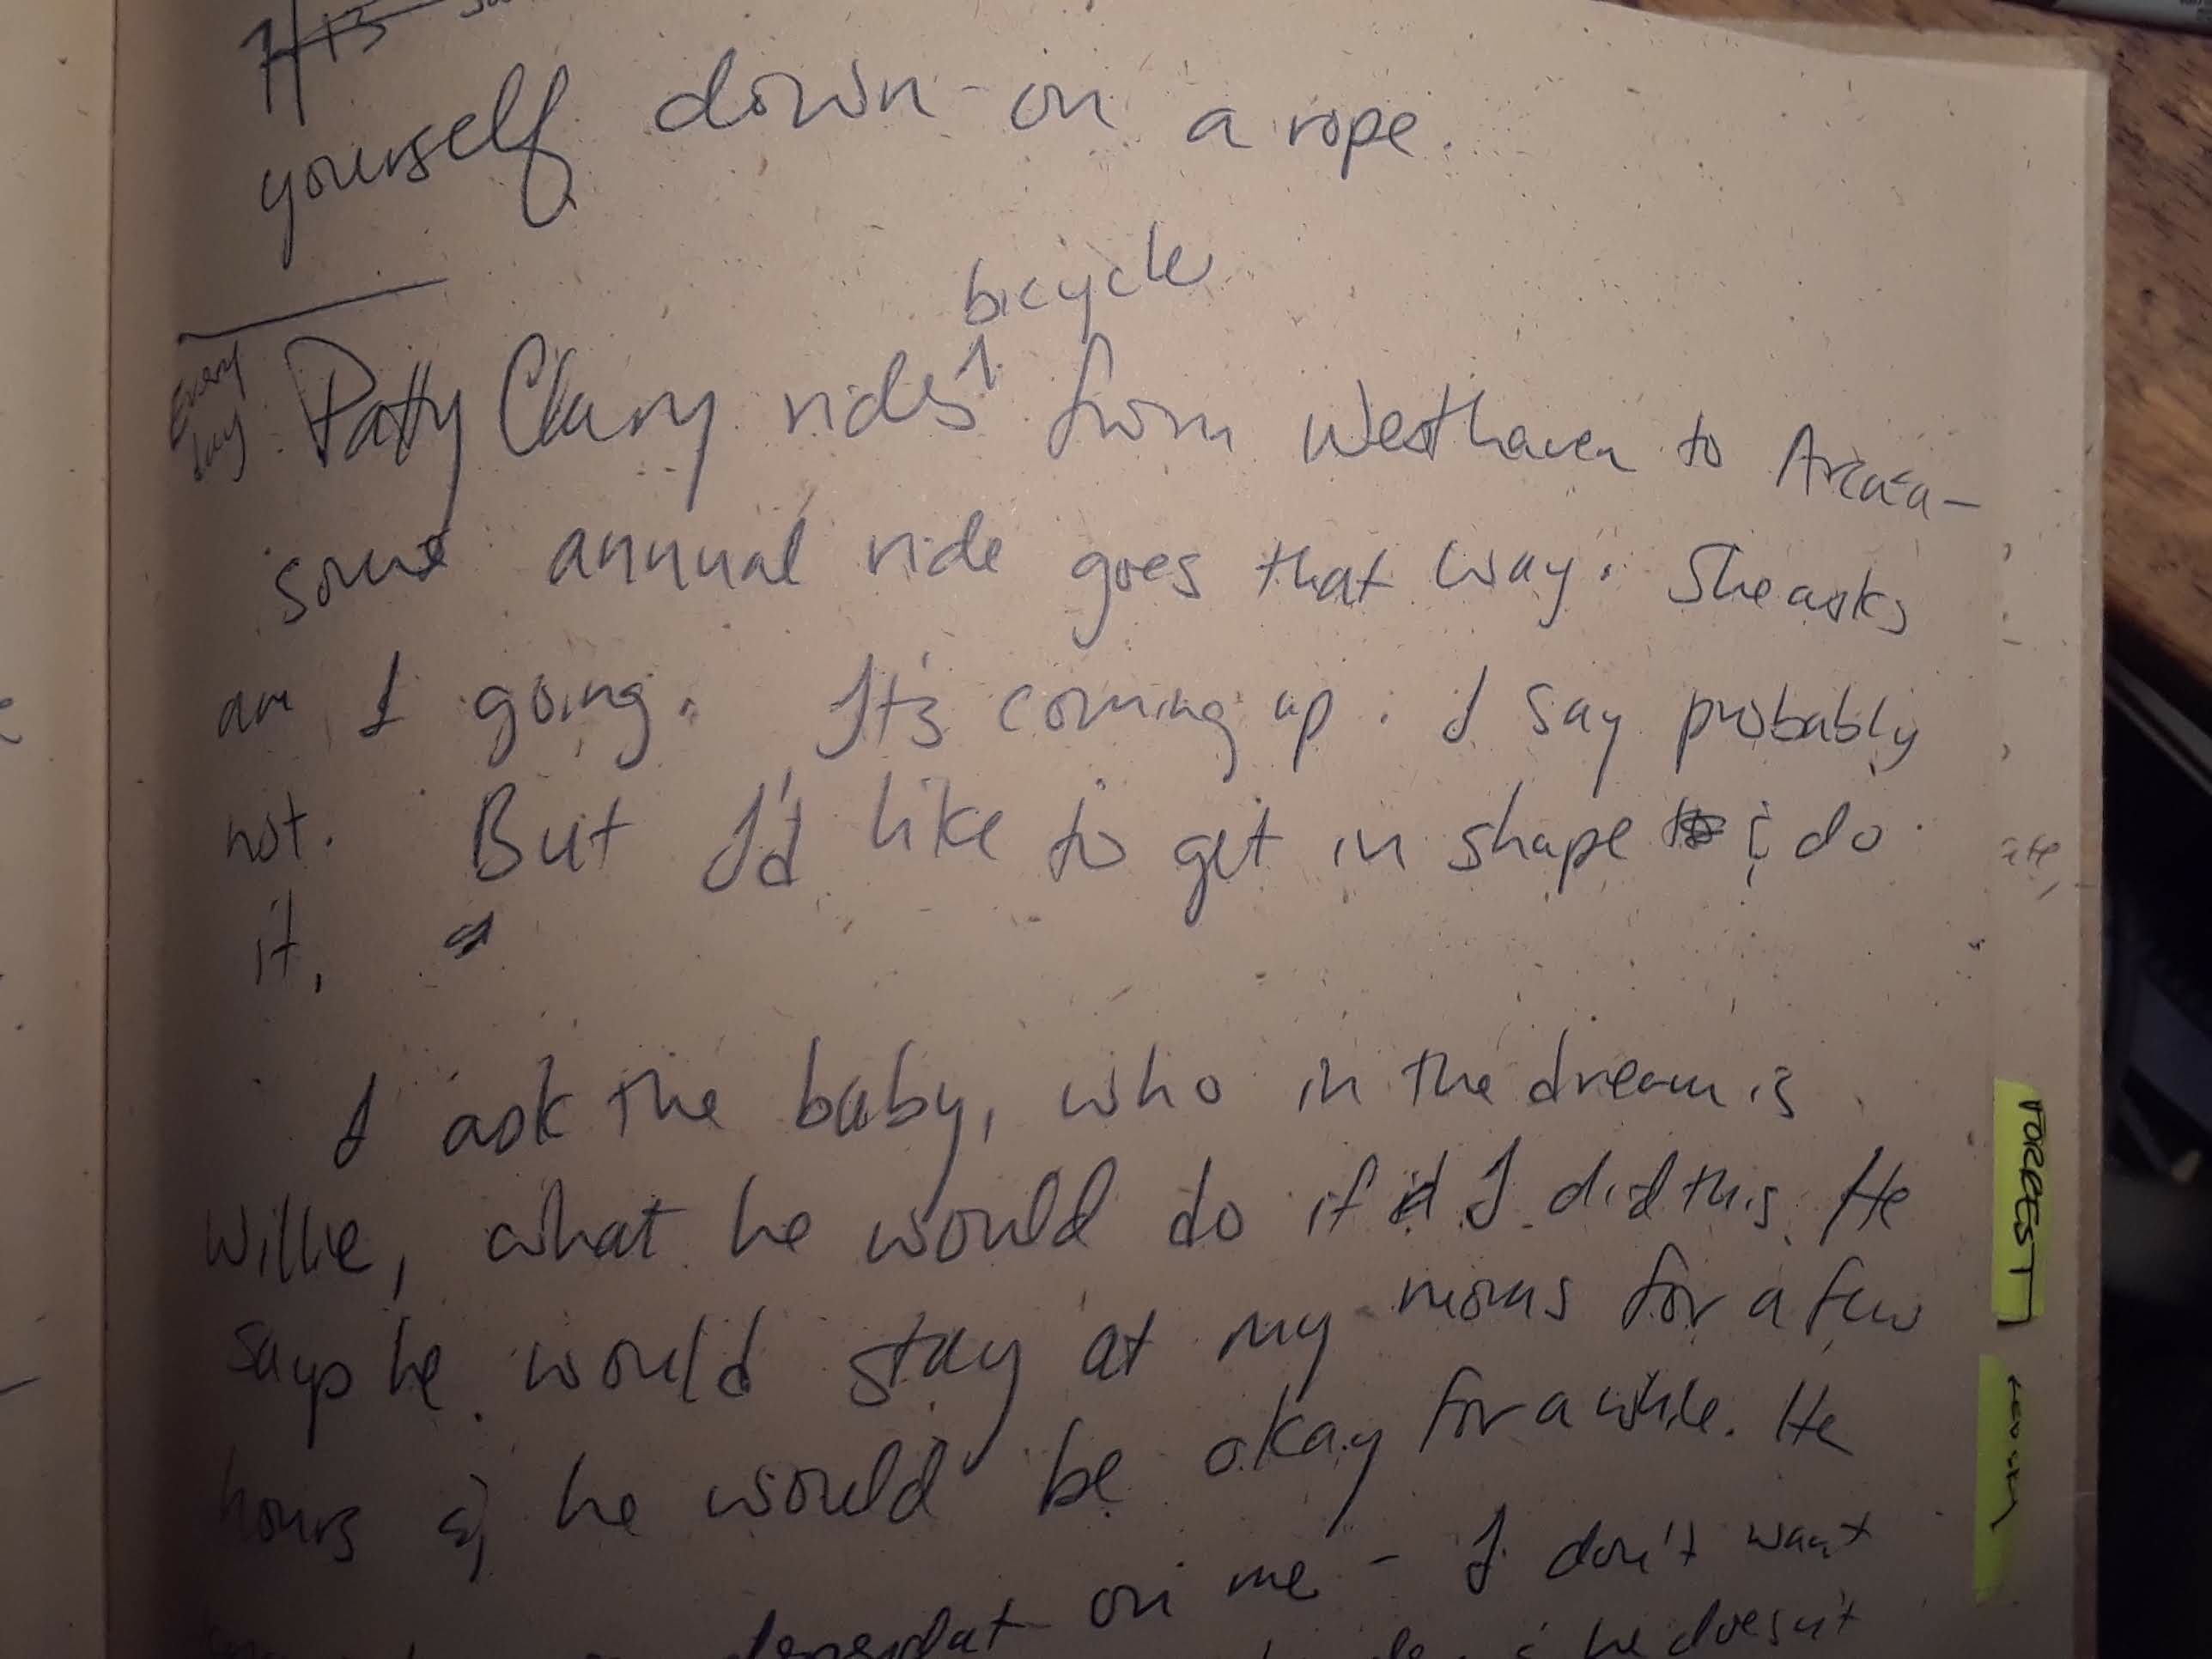 yourself down on a rope.
bicycle
Every
day
Patty Clary rides ^ from Westhaven to Arcata—
some annual ride goes that way. She asks
am I going. It's coming up. I say probably
not. But I'd like to get in shape & do
it.
I ask the baby, who in the dream is
Willie, what he would do if I did this. He
says he would stay at my moms for a few
hours & he would be okay for a while. He
dependat on me - I don't want
& he doesn't
FORREST